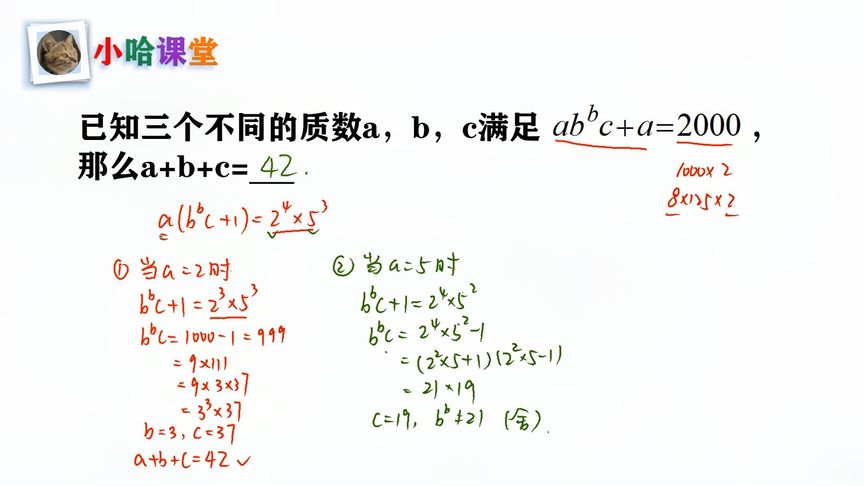 小哈课堂
已知三个不同的质数a，b，c满足 ab^b c+a=2000 ，
那么a+b+c= 42 .
1000×2
8×125×2
a(b^b c+1)=2^4×5^3
① 当a=2时
b^b c+1=2^3×5^3
b^b c=1000-1=999
=9×111
=9×3×37
=3^3×37
b=3, c=37
a+b+c=42 ✓
② 当a=5时
b^b c+1=2^4×5^2
b^b c= 2^4×5^2-1
=(2^2×5+1)(2^2×5-1)
= 21×19
c=19, b^b≠21 (舍).